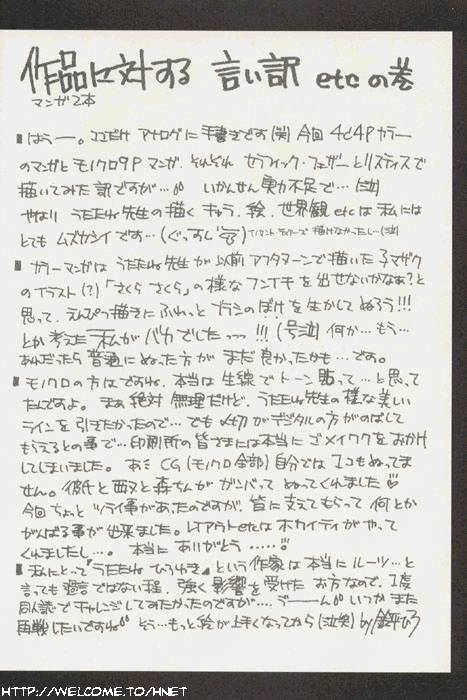 作品に対する 言い訳 etc の巻
マンガ2本
■はぅー。ココだけ アナログに 手書きです(笑) 今回 4c4P カラー
のマンガと モノクロ9P マンガ、それぞれ セラフィック・フェザーとリスティスで
描いてみた 訳ですが…。。 いかんせん 実力不足で…(泣)
やはり うたたね先生の描く キャラ、絵、世界観 etcは 私には
とても ムズカシイです…(ぐっすし) で描けなかったしー(泣)
■カラーマンガは うたたね先生が以前 アフタヌーンで描いた マザク
のイラスト(?)「さくら さくら」の様な フンイキ を出せないかなぁ?と
思って、えんぴつ描きに ふわっと ブラシのぼけを生かして ぬろう!!!
とか考えた 私が バカでしたっ !!!(号泣) 何か…もう…
あれだったら 普通に ぬった方が まだ 良かったかも…です。
■モノクロの方はですね、本当は 生線で トーン貼って…と思って
たんですよ。まぁ 絶対 無理だけど、うたたね先生の様な美しい
ラインを引きたかったので…でも〆切が デジタルの方がのばして
もらえるとの事で…印刷所の皆さまには本当に ゴメイワクをおかけ
してしまいました。あと CG(モノクロ全部)自分では 1コもぬってま
せん。彼氏と 西又と 森ちんが ガンバって ぬってくれました♡
今回 ちょっと ツライ事があったのですが、皆に支えてもらって 何とか
がんばる事が 出来ました。レイアウトetcは ホカイティが やって
くれましたし…。 本当に ありがとう ……♡
■私にとって『うたたね ひろゆき』という作家は 本当に ルーツ…と
言っても 過言ではない程、強く 影響を受けた お方なので、1度
同人誌で チャレンジしてみたかったのですが…。うーーん いつか また
再戦したいですね もう…もっと絵が 上手くなってから(泣笑) by 鈴平ひろ
HTTP://WELCOME.TO/HNET